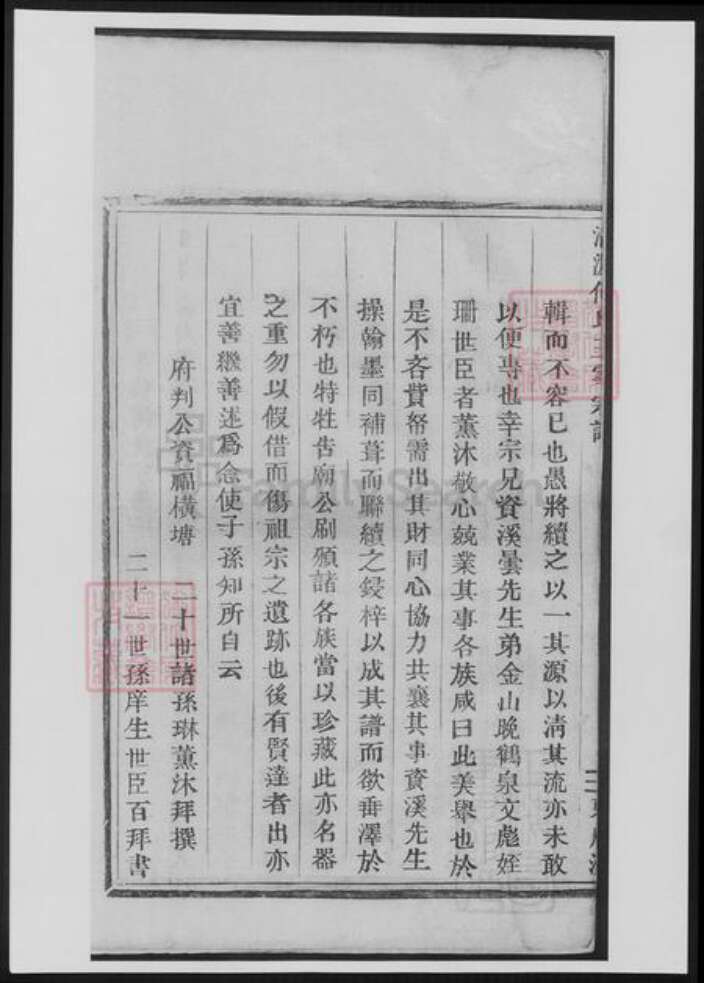 輯而不容已也愚將續之以一其源以清其流亦未敢
以便專也幸宗兄資溪曇先生弟金山晚鶴泉文彪姪
珊世臣者薰沐敬心兢業其事各族咸曰此美舉也於
是不吝費帑需出其財同心協力共襄其事資溪先生
操翰墨同補葺而聯續之鋟梓以成其譜而欲垂澤於
不朽也特牲告廟公刷頒諸各族當以珍藏此亦名器
之重勿以假借而傷祖宗之遺跡也後有賢達者出亦
宜善繼善述爲念使子孫知所自云
府判公資福橫塘 二十世諸孫琳薰沐拜撰
二十一世孫庠生世臣百拜書
FamilySearch